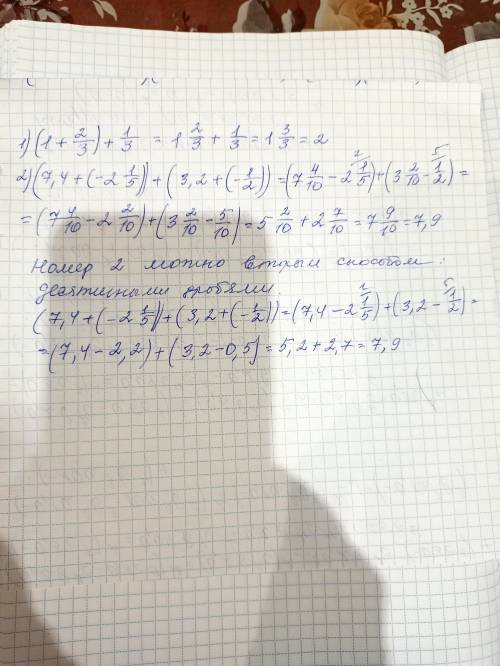 1) (1 + 2/3) + 1/3 = 1 2/3 + 1/3 = 1 3/3 = 2
2) (7,4 + (-2 1/5)) + (3,2 + (-1/2)) = (7 4/10 - 2 1/5 ²) + (3 2/10 - 1/2 ⁵) =
= (7 4/10 - 2 2/10) + (3 2/10 - 5/10) = 5 2/10 + 2 7/10 = 7 9/10 = 7,9
Номер 2 можно вторым способом:
десятичными дробями
(7,4 + (-2 1/5)) + (3,2 + (-1/2)) = (7,4 - 2 1/5 ²) + (3,2 - 1/2 ⁵) =
= (7,4 - 2,2) + (3,2 - 0,5) = 5,2 + 2,7 = 7,9